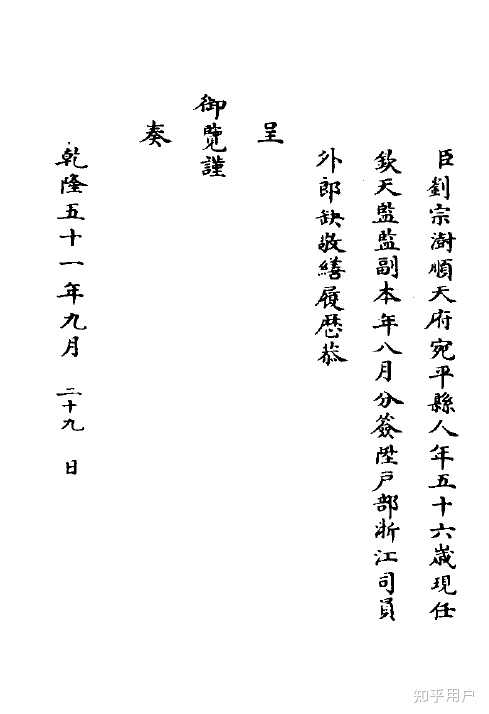 臣劉宗澍順天府宛平縣人年五十六歲現任
欽天監監副本年八月分簽陞戶部浙江司員
外郎缺敬繕履歷恭
呈
御覽謹
奏
乾隆五十一年九月二十九日
知乎用户